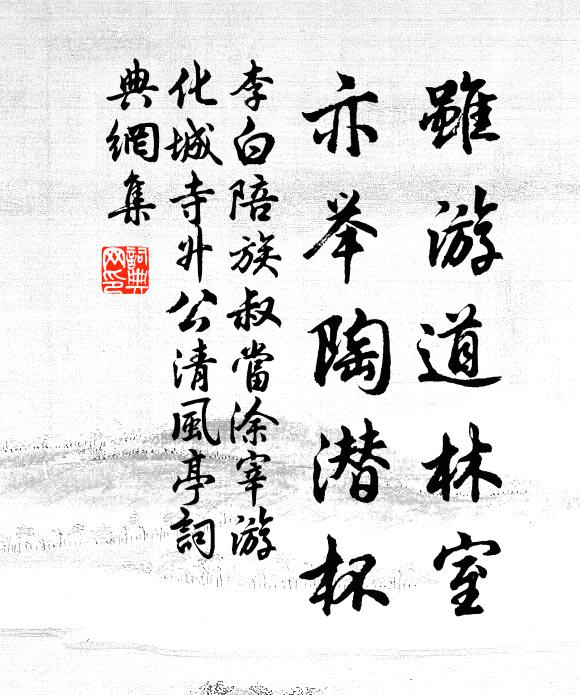 雖游道林室
亦举陶潜杯
李白陪族叔當涂宰游
化城寺升公清風亭詞
典網集
詞典
网印